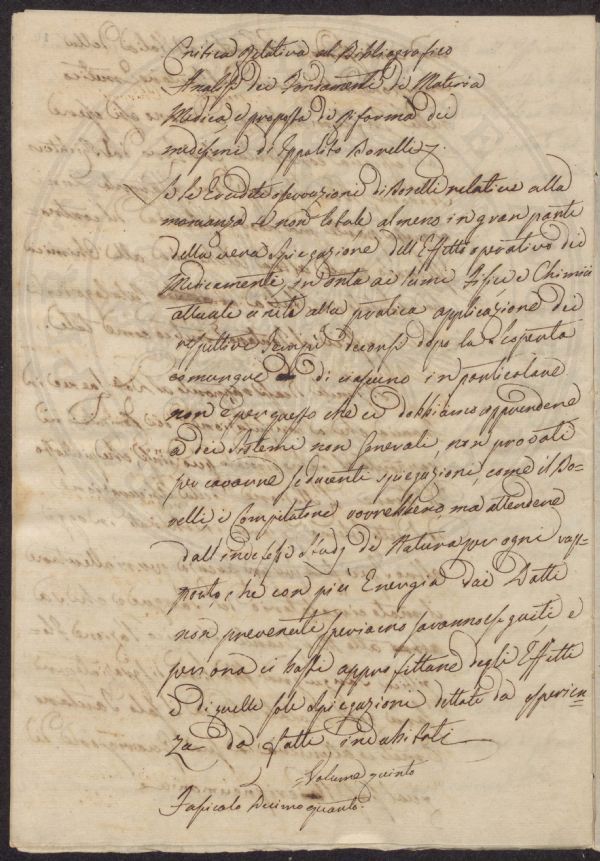 Critica Relativa al Bibliografico
Analisi dei Fondamenti di Materia
Medica e proposta di riforma dei
medesimi di Ippolito Borelli
Se le Erudite osservazioni di Borelli relative alla
mancanza se non totale almeno in gran parte
della vera spiegazione dell'Effetto operativo dei
Medicamenti, in onta ai lumi Fisici e Chimici
attuali uniti alla pratica applicazione dei
rispettivi decorsi dopo la scoperta
comunque di ciascuno in particolare
non è per questo che ci dobbiamo apprendere
a dei sistemi non generali, non provati
per cavarne seducenti spiegazioni, come il Bo-
relli e Compilatore vorrebbero, ma attendere
dall'indefesso Study di Natura per ogni rap-
porto, che con più Energia dai Dotti
non prevenuti saranno eseguiti e
per ora ci basti approfittare degli Effetti
e di quelle sole spiegazioni dettate da esperien-
za da fatti indubitati
Volume quinto
Fasicolo Decimoquarto.